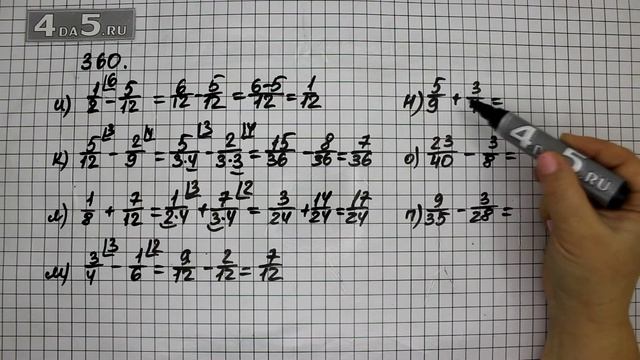 4DA5.RU
360.
и) 1/2 ⌊6 - 5/12 = 6/12 - 5/12 = (6-5)/12 = 1/12
к) 5/12 ⌊3 - 2/9 ⌊4 = 5/(3·4) ⌊3 - 2/(3·3) ⌊4 = 15/36 - 8/36 = 7/36
л) 1/8 + 7/12 = 1/(2·4) ⌊3 + 7/(3·4) ⌊2 = 3/24 + 14/24 = 17/24
м) 3/4 ⌊3 - 1/6 ⌊2 = 9/12 - 2/12 = 7/12
н) 5/9 + 3/ =
о) 23/40 - 3/8 =
п) 9/35 - 3/28 =
4DA5.RU